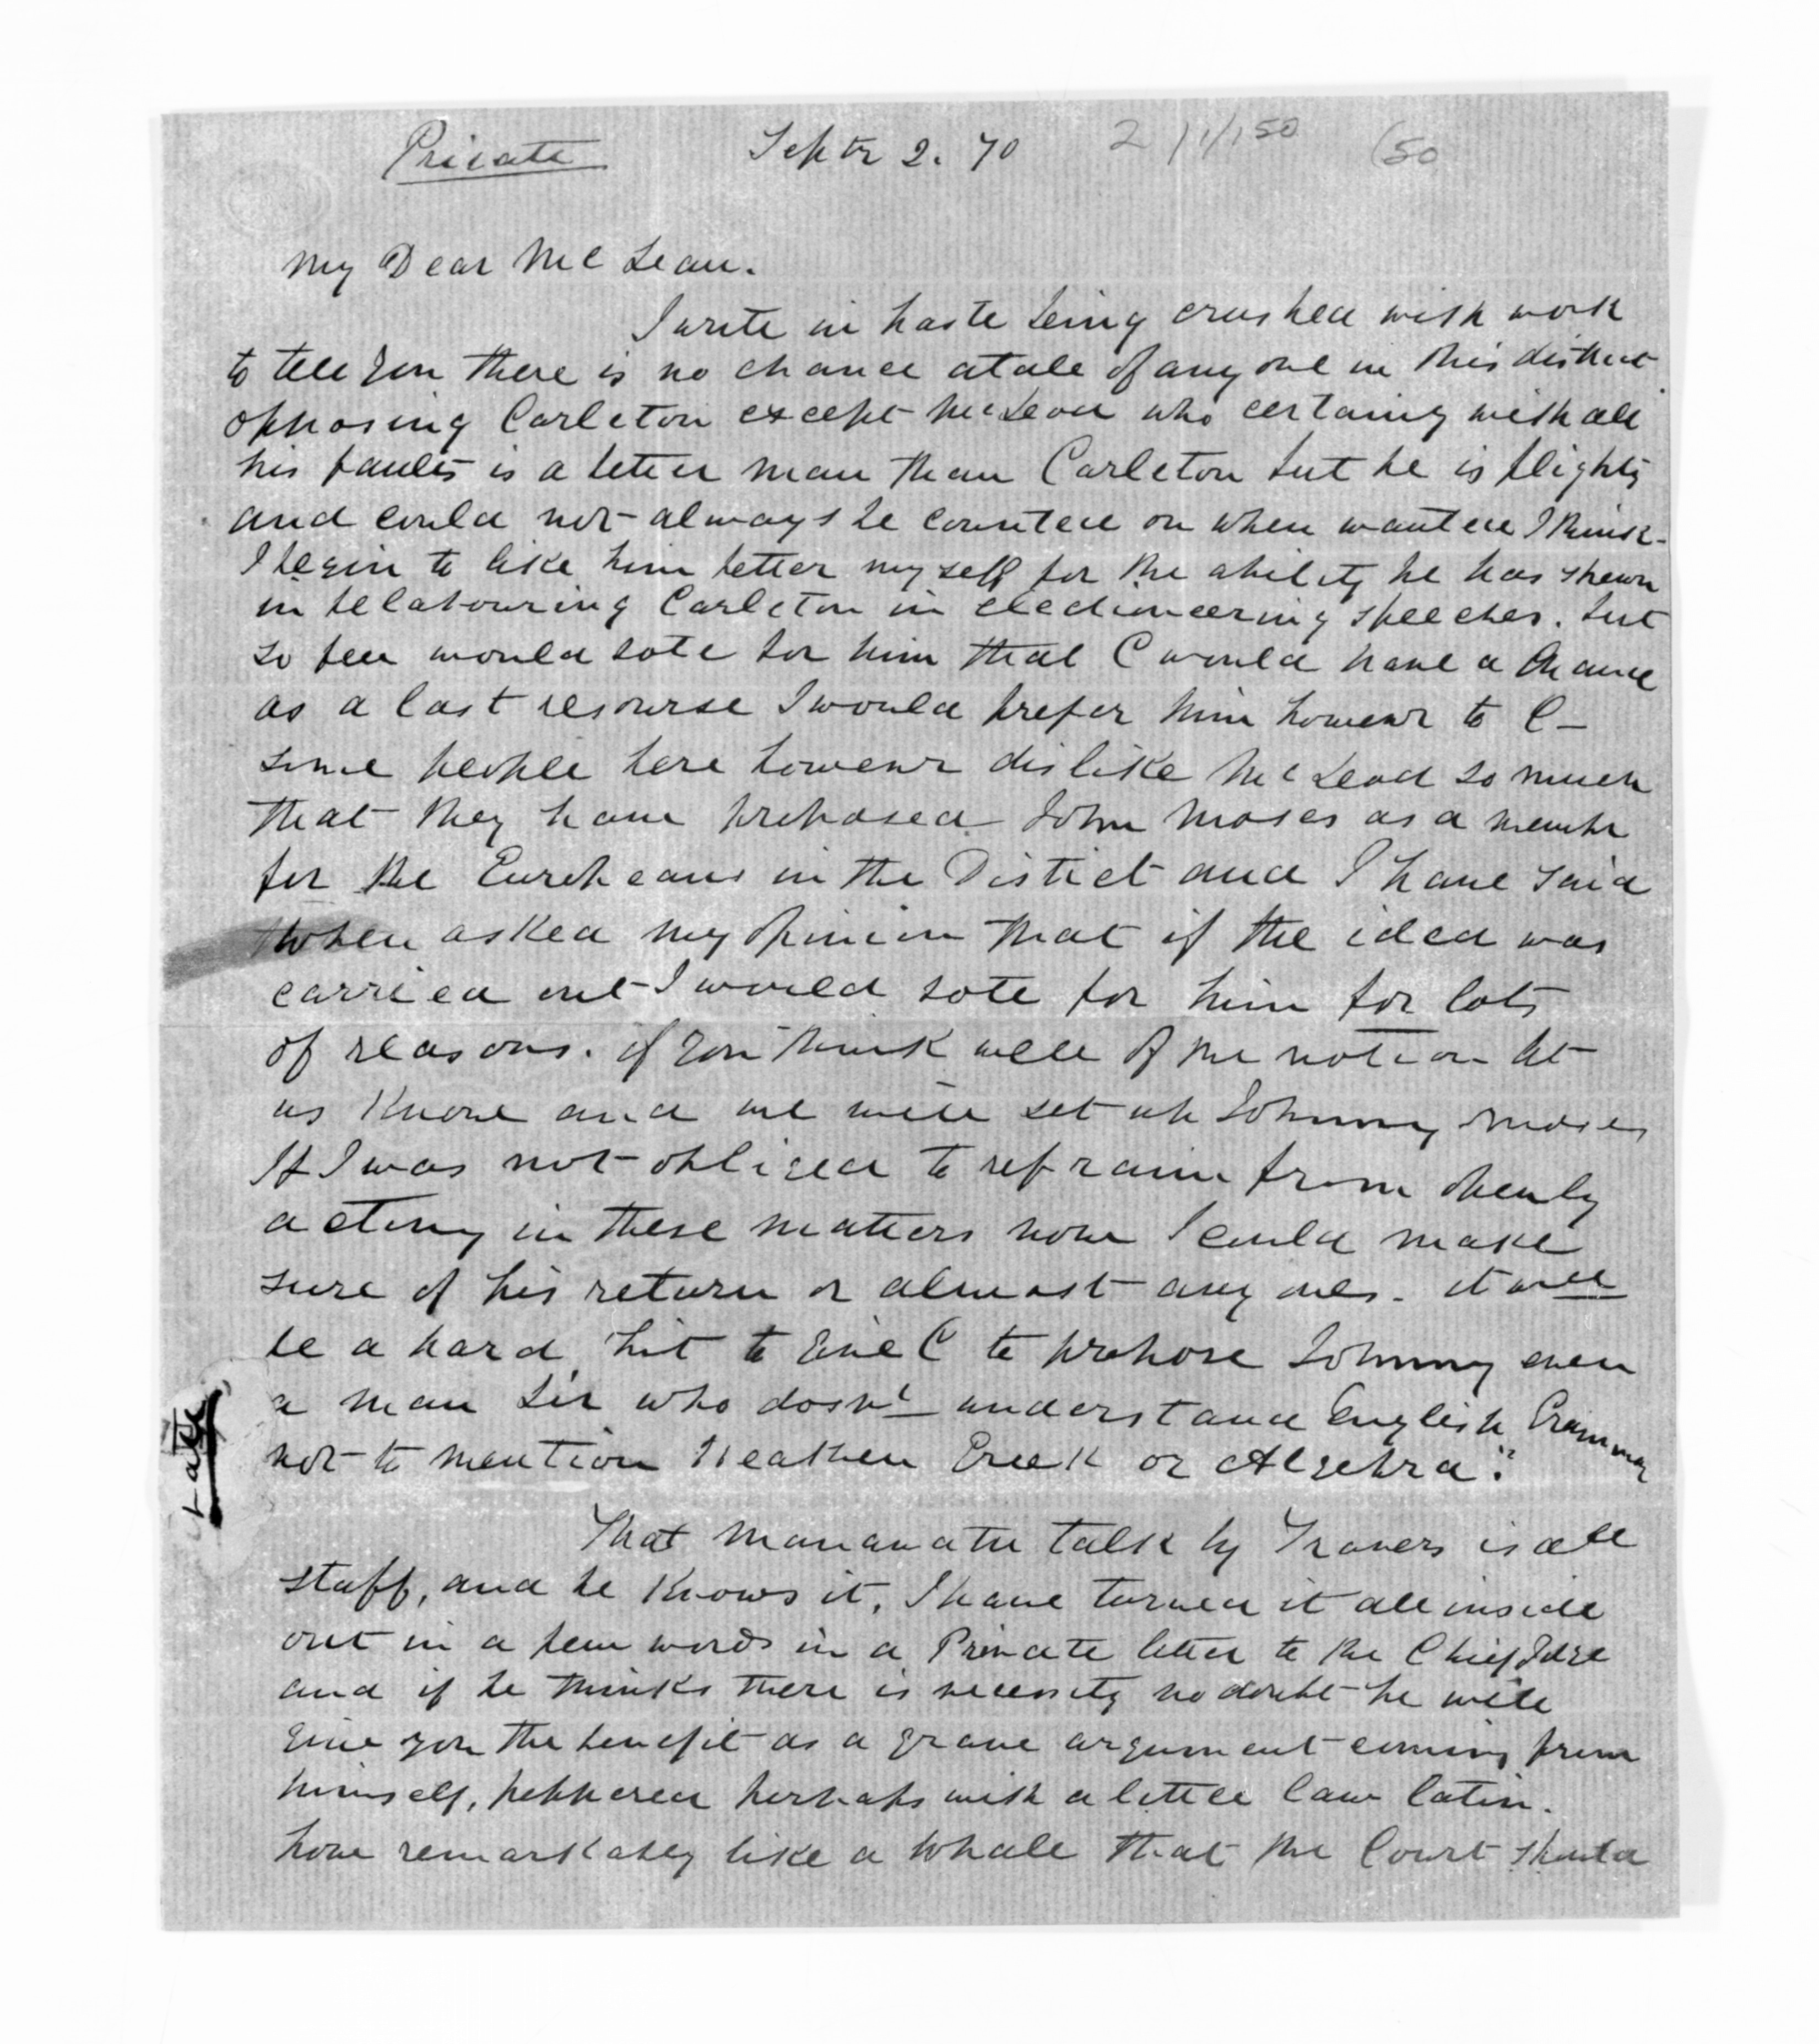 Private Septr 2. 70 2/1/150 (50
My Dear McLean.
I write in haste being crushed with work
to tell you there is no chance atale of any one in this district
opposing Carleton except McLeod who certainly with all
his faults is a better man than Carleton but he is flighty
and could not always be counted on when wanted I think -
I begin to like him better myself for the ability he has shewn
in belabouring Carleton in electioneering speeches. but
so few would vote for him that C would have a chance
as a last resourse I would prefer him however to C -
some people here however dislike McLeod so much
that they have proposed John Moses as a member
for the Europeans in the District and I have said
when asked my opinion that if the idea was
carried out I would vote for him for lots
of reasons. if you think well of the notion let
us know and we will set up Johnny Moses
If I was not obliged to refrain from openly
acting in these matters now I could make
sure of his return or almost any ones. it will
be a hard hit to give C to propose Johnny even
a man Sir who dosnt understand English Grammar
not to mention Heathen Greek or Algebra".
That Manawatu talk by Travers is all
staff, and he knows it, I have turned it all inside
out in a few words in a Private letter to the Chief Jdge
and if he thinks there is necessity no doubt he will
give you the benefit as a grave argument coming from
himself, peppered perhaps with a little law latin.
how remarkably like a Whale that the Court should